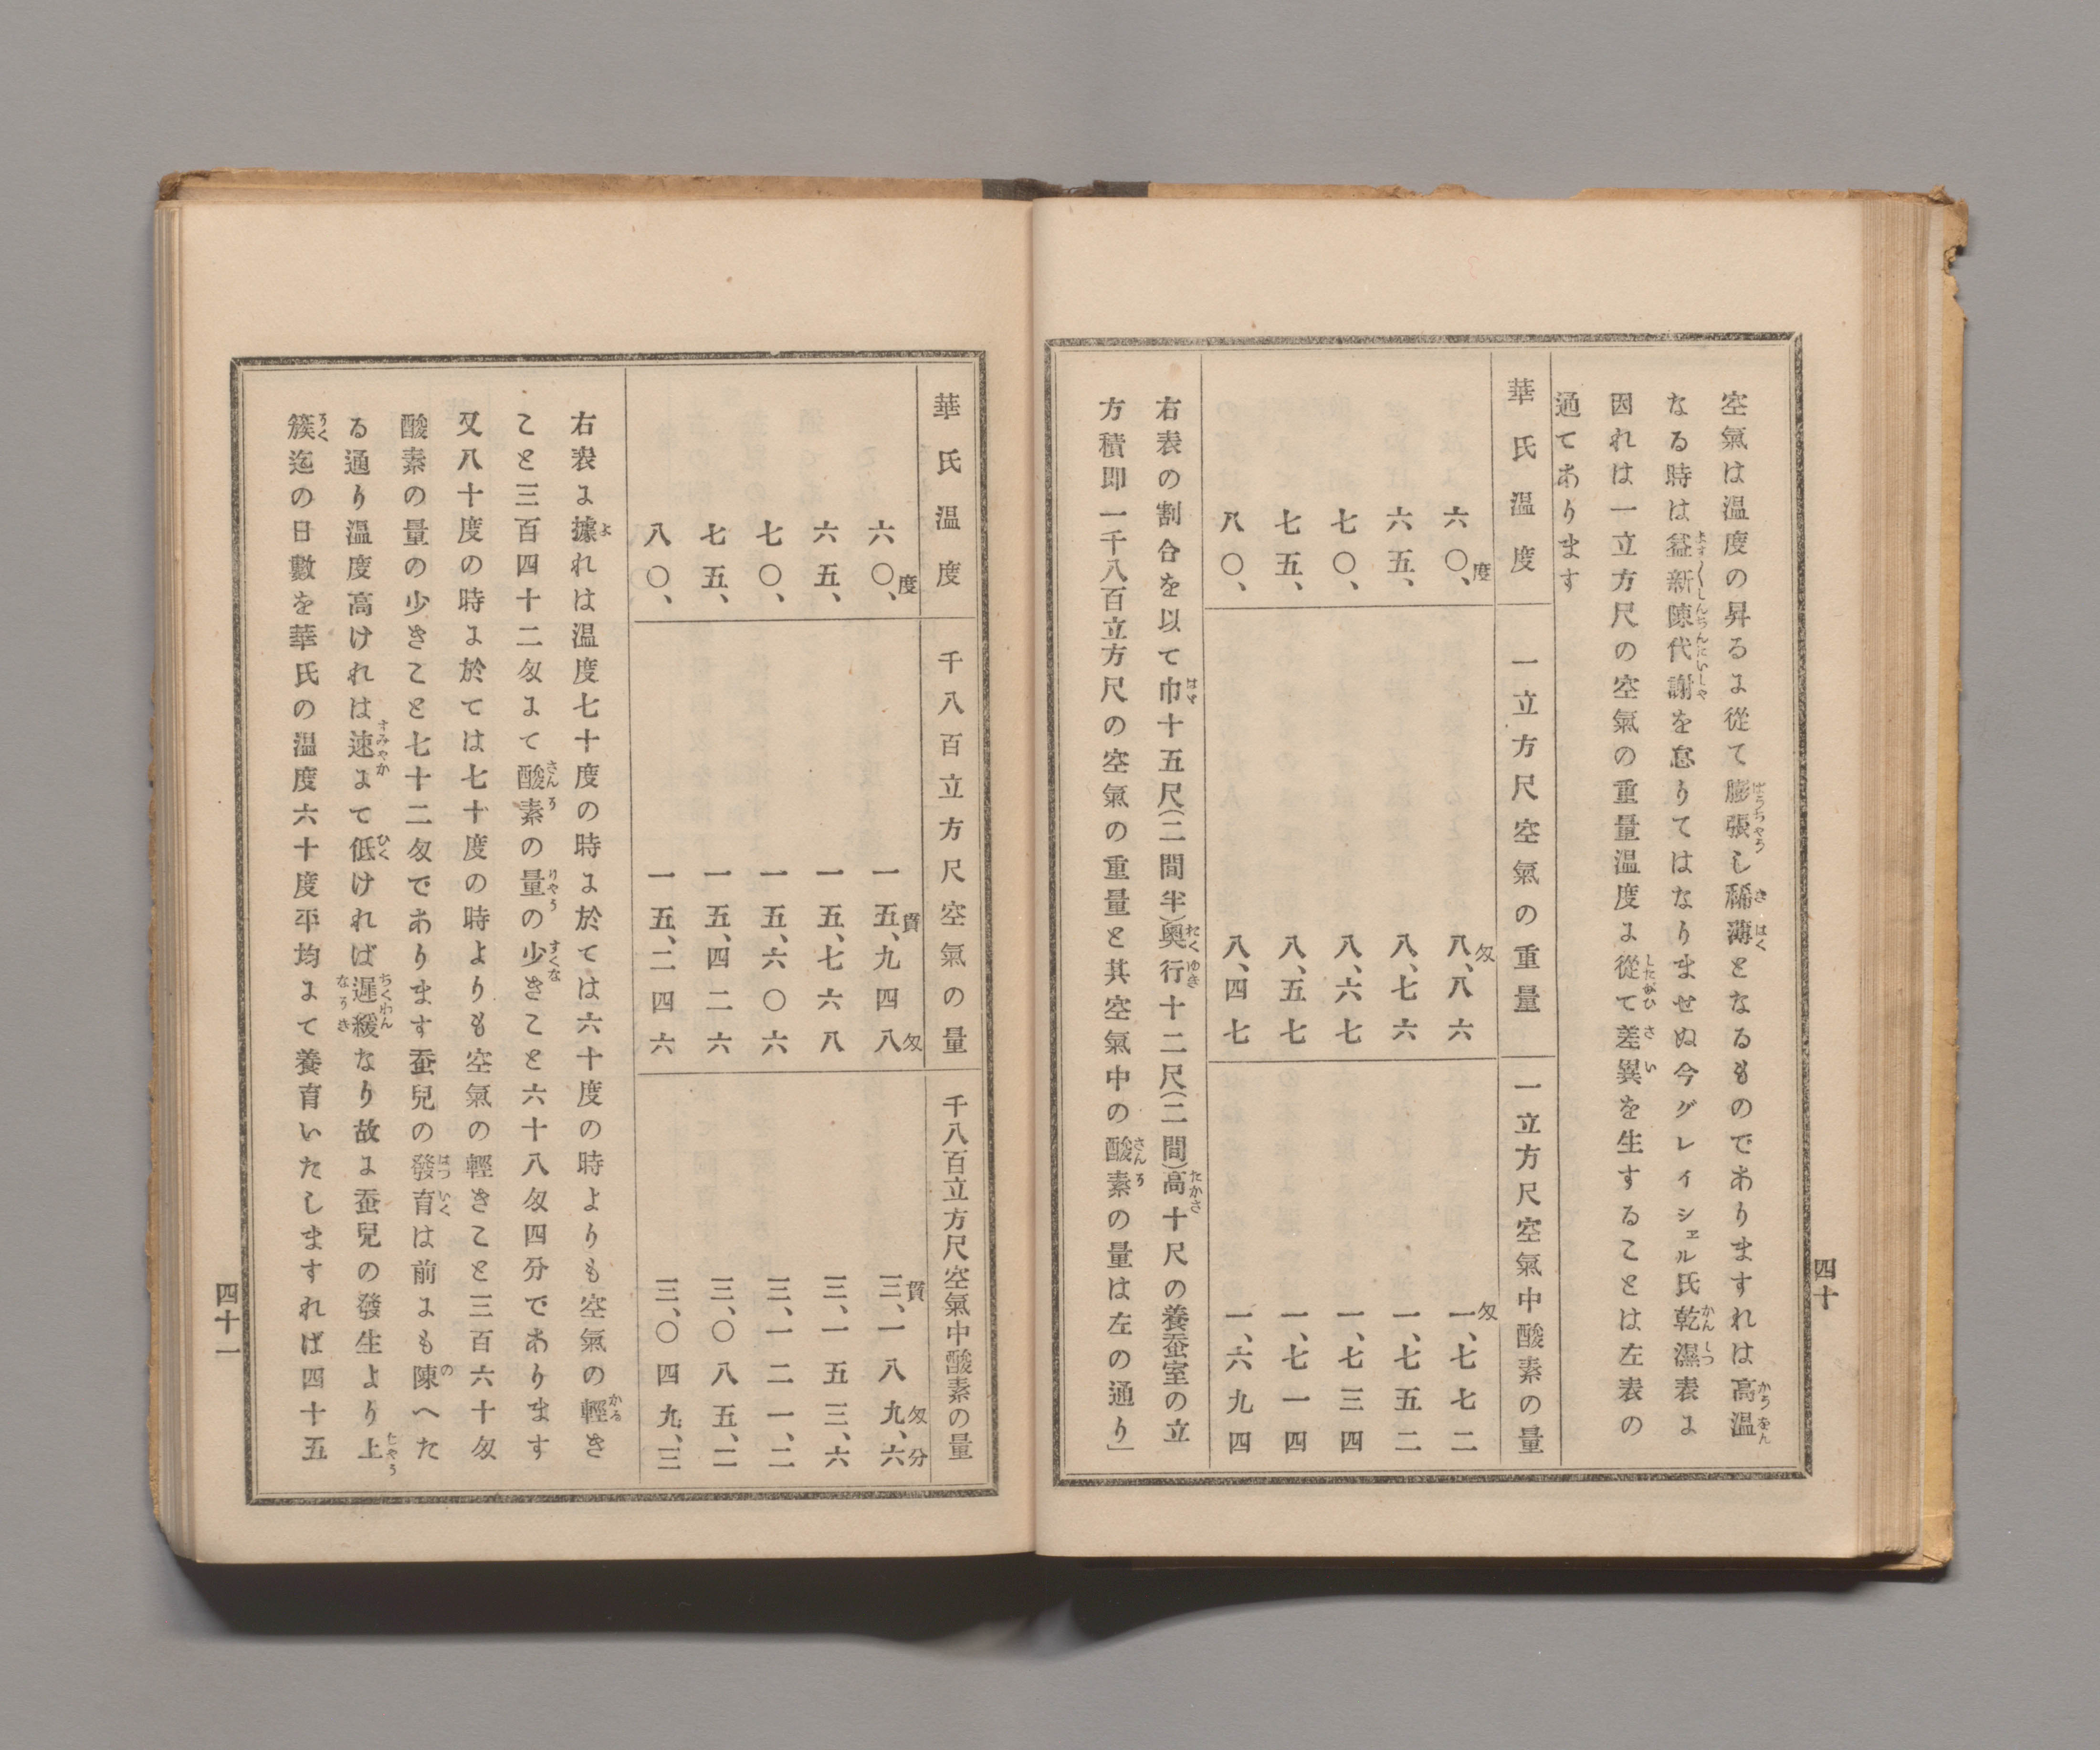 空氣は温度の昇るに從て膨張し稀薄となるものでありますれは髙温
なる時は益新陳代謝を怠りてはなりませぬ今グレイシエル氏乾濕表に
因れは一立方尺の空氣の重量温度に從て差異を生することは左表の
通てあります
華氏温度 一立方尺空氣の重量 一立方尺空氣中酸素の量
六〇、度 八、八六匁 一、七七二匁
六五、 八、七六 一、七五二
七〇、 八、六七 一、七三四
七五、 八、五七 一、七一四
八〇、 八、四七 一、六九四
右表の割合を以て巾十五尺(二間半)奥行十二尺(二間)高十尺の養蚕室の立
方積即一千八百立方尺の空氣の重量と其空氣中の酸素の量は左の通り」
四十
華氏温度 千八百立方尺空氣の量 千八百立方尺空氣中酸素の量
六〇、度 一五、貫九四八匁 三、貫一八九、匁六分
六五、 一五、七六八 三、一五三、六
七〇、 一五、六〇六 三、一二一、二
七五、 一五、四二六 三、〇八五、二
八〇、 一五、二四六 三、〇四九、三
右表に據れは温度七十度の時に於ては六十度の時よりも空氣の輕き
こと三百四十二匁にて酸素の量の少きこと六十八匁四分であります
又八十度の時に於ては七十度の時よりも空氣の輕きこと三百六十匁
酸素の量の少きこと七十二匁であります蚕兒の發育は前にも陳へた
る通り温度高けれは速にて低ければ遲緩なり故に蚕兒の發生より上
簇迄の日數を華氏の温度六十度平均にて養育いたしますれば四十五
四十一